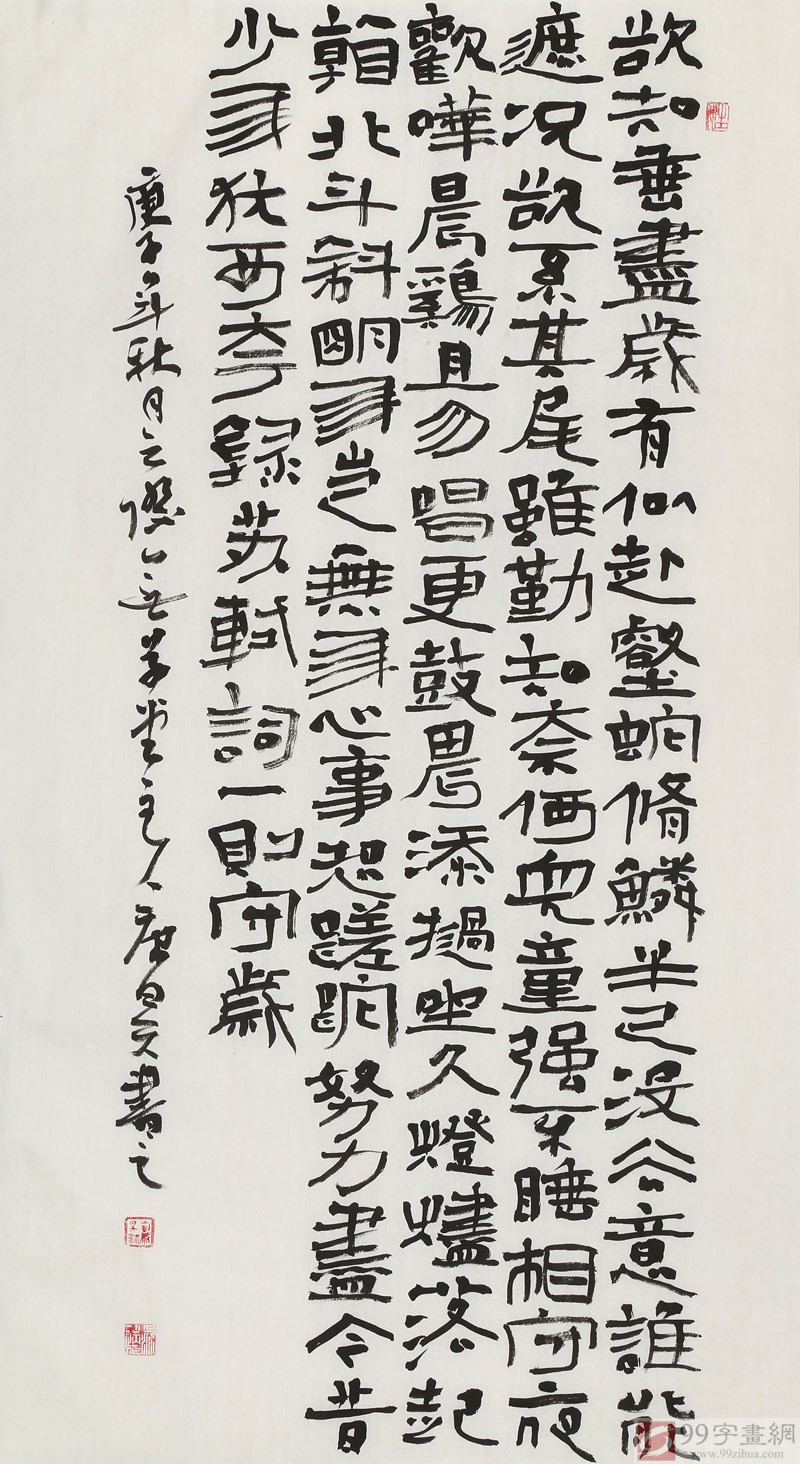 欲知垂盡歲有似赴壑蛇脩鱗半已沒去意誰能
遮况欲系其尾雖勤知奈何兒童强不睡相守夜
歡嘩晨鷄且勿唱更鼓畏添撾坐久燈燼落起
看北斗斜明年豈無年心事恐蹉跎努力盡今昔
少年犹可夸錄苏軾詞一則守歲
庚子年秋月之際草堂主人書之
99字畫網
www.99zihua.com